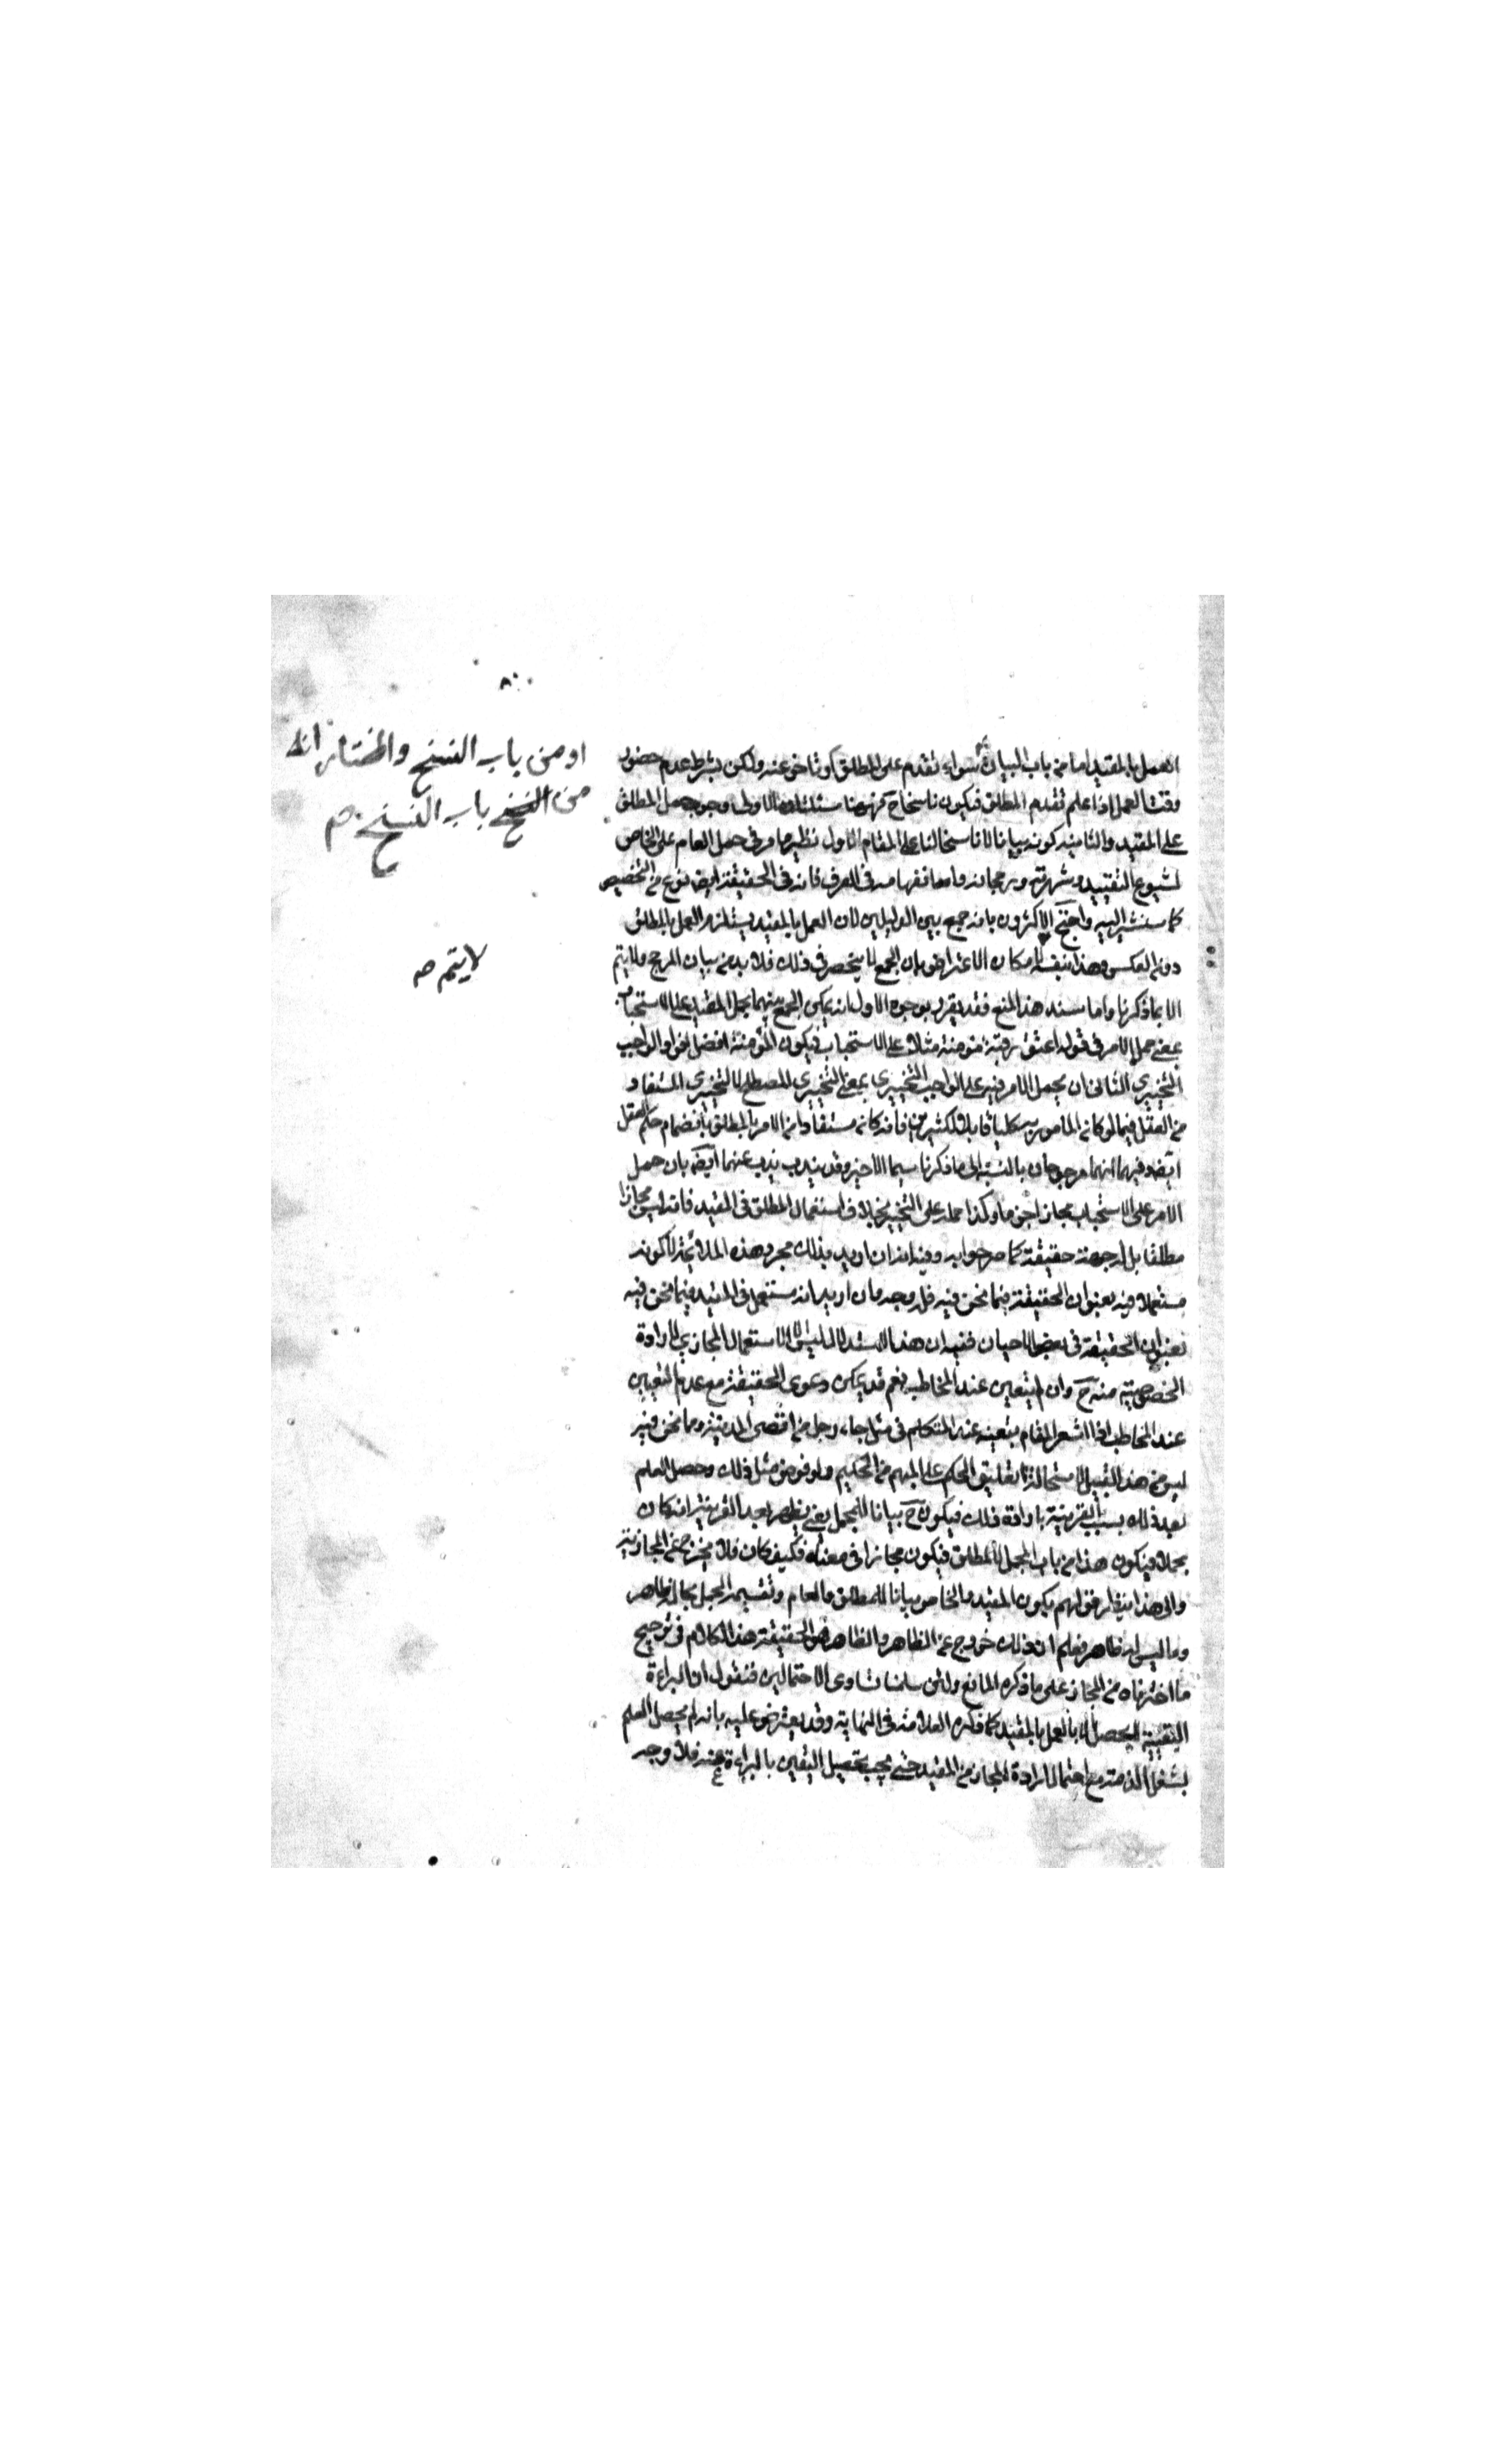 العمل بالمقيد اما من باب البيان سواء تقدم على المطلق او تاخر عنه ولكن بشرط عدم حضور
وقت العمل اذا علم تقدم المطلق فيكون ناسخا ح فههنا مسئلتان الاولى وجوب حمل المطلق
على المقيد والثانية كونه بيانا لا ناسخا لنا على المقام الاول نظير ما مر في حمل العام على الخاص
لشيوع التقييد وشهرته ورجحانه وامعا نفهامه في العرف فانه في الحقيقة ايضا نوع من التخصيص
كما سنشير اليه واحتج الاكثرون بانه جمع بين الدليلين لان العمل بالمقيد يستلزم العمل بالمطلق
دون العكس وهذا بنفسه لامكان الاعتراض بان الجمع لا ينحصر في ذلك فلا بد من بيان المرجح ولا يتم
الا بما ذكرنا واما سند هذا المنع فقد يقرر بوجوه الاول انه يمكن الجمع بينهما بحمل المقيد على الاستحباب
بمعنى حمل الامر في قوله اعتق رقبة مؤمنة مثلا على الاستحباب فيكون المؤمنة افضل افراد الواجب
التخييري الثاني ان يحمل الامر فيه على الواجب التخييري بمعنى التخييري المصطلح لا التخييري المستفاد
من العقل فيما لو كان المامور به كليا قابلا لكثيرين فانه كان مستفادا من الامر بالمطلق بانضمام حكم العقل
ايضا وفيهما انهما مرجوحان بالنسبة الى ما ذكرنا سيما الاخير وقد يذب عنهما ايضا بان حمل
الامر على الاستحباب مجاز اجزما وكذا حمله على التخيير بخلاف استعمال المطلق في المقيد فانه ليس مجازا
مطلقا بل له جهة حقيقة كما صرحوا به وفيه انه ان اريد بذلك مجرد هذه الملائمة لا كونه
مستعملا فيه بعنوان الحقيقة فيما نحن فيه فله وجه وان اريد انه مستعمل في المقيد فيما نحن فيه
بعنوان الحقيقة في بعض الاحيان ففيه ان هذا الاستدلال ليس الا الاستعمال المجازي لارادة
الخصوصية منه ح وان لم يتعين عند المخاطب نعم قد يمكن دعوى الحقيقة مع عدم التعيين
عند المخاطب اذا اشعر المقام بتعينه عند المتكلم في مثل جاء رجل من اقصى المدينة وما نحن فيه
ليس من هذا القبيل لاستحالة تعليق الحكم على المبهم من الحكيم ولو فرض مثل ذلك وحصل العلم
بعد ذلك بسبب القرينة بارادة ذلك فيكون ح بيانا للمجمل يعني يظهر بعد القرينة انه كان
مجملا فيكون هذا من باب المجمل لا المطلق فيكون مجازا في معناه فكيف كان فلا يخرج عن المجازية
والى هذا ينظر قولهم بكون المقيد والخاص بيانا للمطلق والعام وتقسيمهم المجمل بما له ظاهر
وما ليس له ظاهر فعلم ان ذلك خروج عن الظاهر والظاهر هو الحقيقة هذا الكلام في ترجيح
ما اخترناه من المجاز على ما ذكره المانع ولئن سلمنا تساوي الاحتمالين فنقول ان البراءة
اليقينية لا يحصل الا بالعمل بالمقيد كما ذكره العلامة في النهاية وقد يعترض عليه بانه لم يحصل العلم
بشغل الذمة مع احتمال ارادة المجاز من المقيد حتى يجب تحصيل اليقين بالبراءة عنه فلا وجه
او من باب النسخ والمختار انه
من باب النسخ م
لا يتم صه